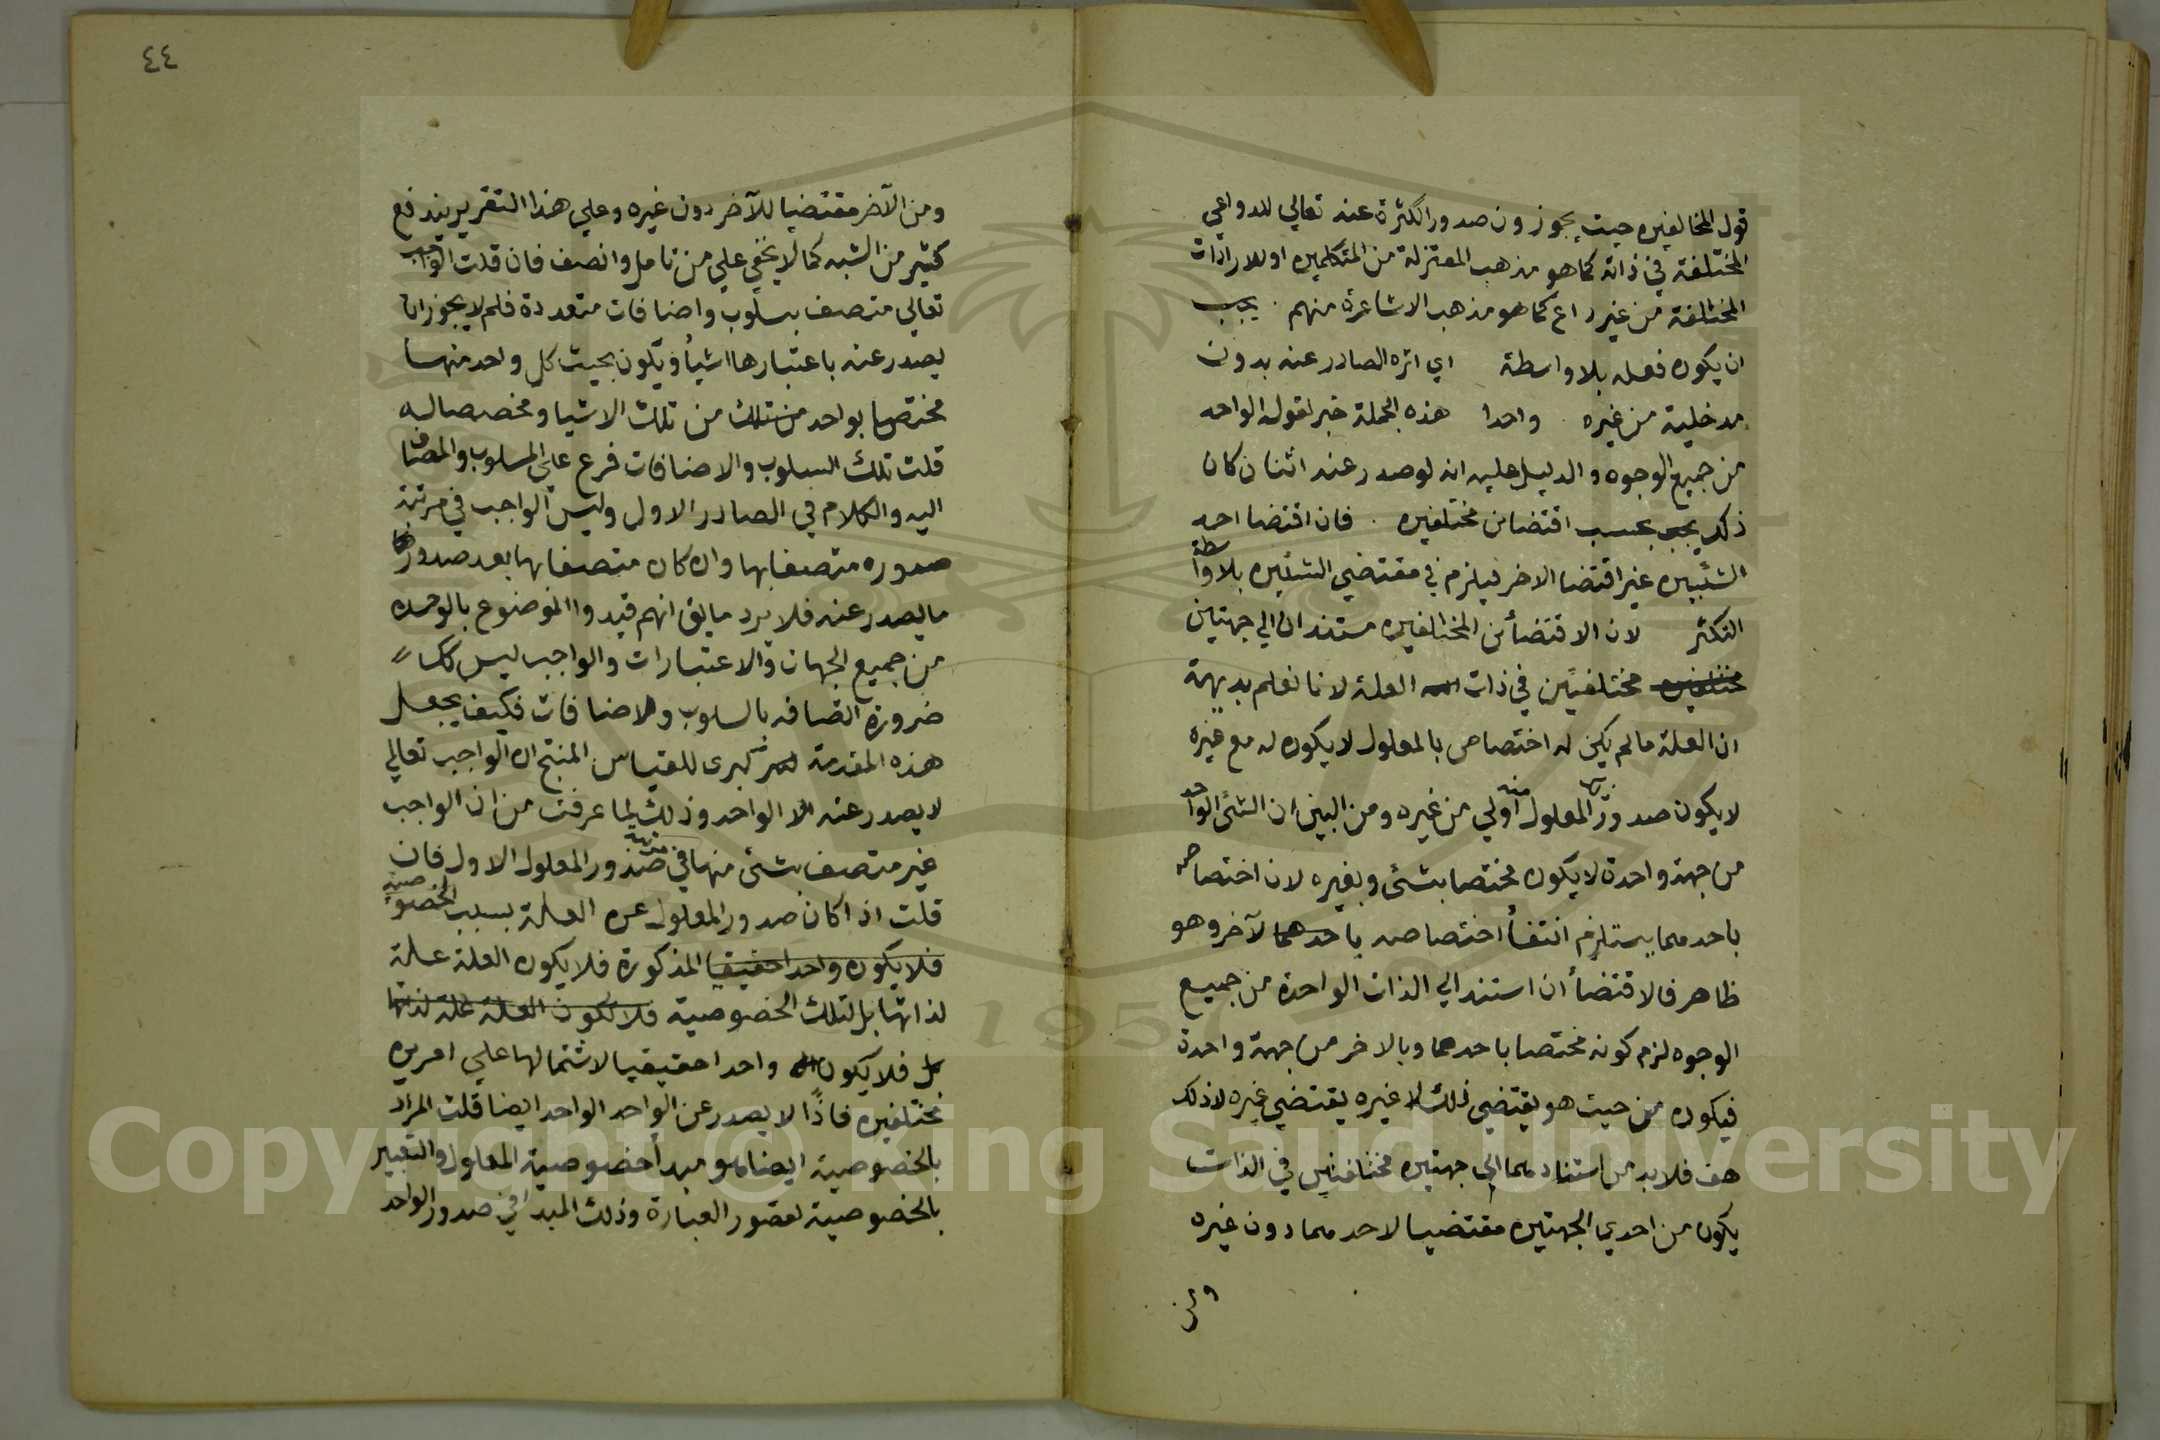 قول المخالفين حيث يجوزون صدور الكثرة عنه تعالي للدواعي
المختلفة في ذاته كما هو مذهب المعتزلة من المتكلمين او للارادات
المختلفة من غير داع كما هو مذهب الاشاعرة منهم . يجب
ان يكون فعله بلا واسطة اي اثره الصادر عنه بدون
مدخلية من غيره . واحدا هذه الجملة خبر لقوله الواحد
من جميع الوجوه والدليل عليه انه لو صدر عنه اثنان كان
ذلك يجب بحسب اقتضائين مختلفين . فان اقتضا احد
الشيئين غير اقتضا الاخر فيلزم في مقتضي الشيئين بلا واسطة
التكثر لان الاقتضائين المختلفين مستندان الي جهتين
مختلفين مختلفتين في ذات العلة لانا نعلم بديهة
ان العلة ما لم يكن له اختصاص بالمعلول لا يكون له مع غيره
لا يكون صدور المعلول منه اولي من غيره ومن البين ان الشئ الواحد
من جهة واحدة لا يكون مختصا بشئ وبغيره لان اختصاصه
باحدهما يستلزم انتفأ اختصاصه باحدهما لآخر وهو
ظاهر فالاقتضأ ان استند الي الذات الواحدة من جميع
الوجوه لزم كونه مختصا باحدهما وبالاخر من جهة واحدة
فيكون من حيث هو يقتضي ذلك لا غيره يقتضي غيره لا ذلك
هف فلا بد من استنادهما الي جهتين مختلفتين في الذات
يكون من احدي الجهتين مقتضيا لاحدهما دون غيره
ومن
٤٤
ومن الآخر مقتضيا للآخر دون غيره وعلي هذا التقرير يندفع
كثير من الشبه كما لا يخفي علي من تامل وانصف فان قلت الواجب
تعالي متصف بسلوب واضافات متعددة فلم لا يجوز ان
يصدر عنه باعتبارها اشيأ ويكون بحيث كل واحد منها
مختصا بواحد من تلك من تلك الاشيا ومخصصا له
قلت تلك السلوب والاضافات فرع علي المسلوب والمضاف
اليه والكلام في الصادر الاول وليس الواجب في مرتبة
صدوره متصفا بها وان كان متصفا بها بعد صدورها
ما يصدر عنه فلا يرد ما يق انهم قيدوا الموضوع بالوحدة
من جميع الجهات والاعتبارات والواجب ليس كك
ضرورة اتصافه بالسلوب والاضافات فكيف يجعل
هذه المقدمة كبرى للقياس المنتج ان الواجب تعالي
لا يصدر عنه الا الواحد وذلك لما عرفت من ان الواجب
غير متصف بشئ منها في مرتبة صدور المعلول الاول فان
قلت اذا كان صدور المعلول عن العلة بسبب الخصوصية
فلا يكون واحدا حقيقيا المذكورة فلا يكون العلة علة
لذاتها بل لتلك الخصوصية فلا تكون العلة علة لذتها
بل فلا يكون واحدا حقيقيا لاشتمالها علي امرين
مختلفين فاذًا لا يصدر عن الواحد الواحد ايضا قلت المراد
بالخصوصية ايضا هو مبدأ خصوصية المعلول والتعبير
بالخصوصية لقصور العبارة وذلك المبدا في صدور الواحد
Copyright © King Saud University
1957